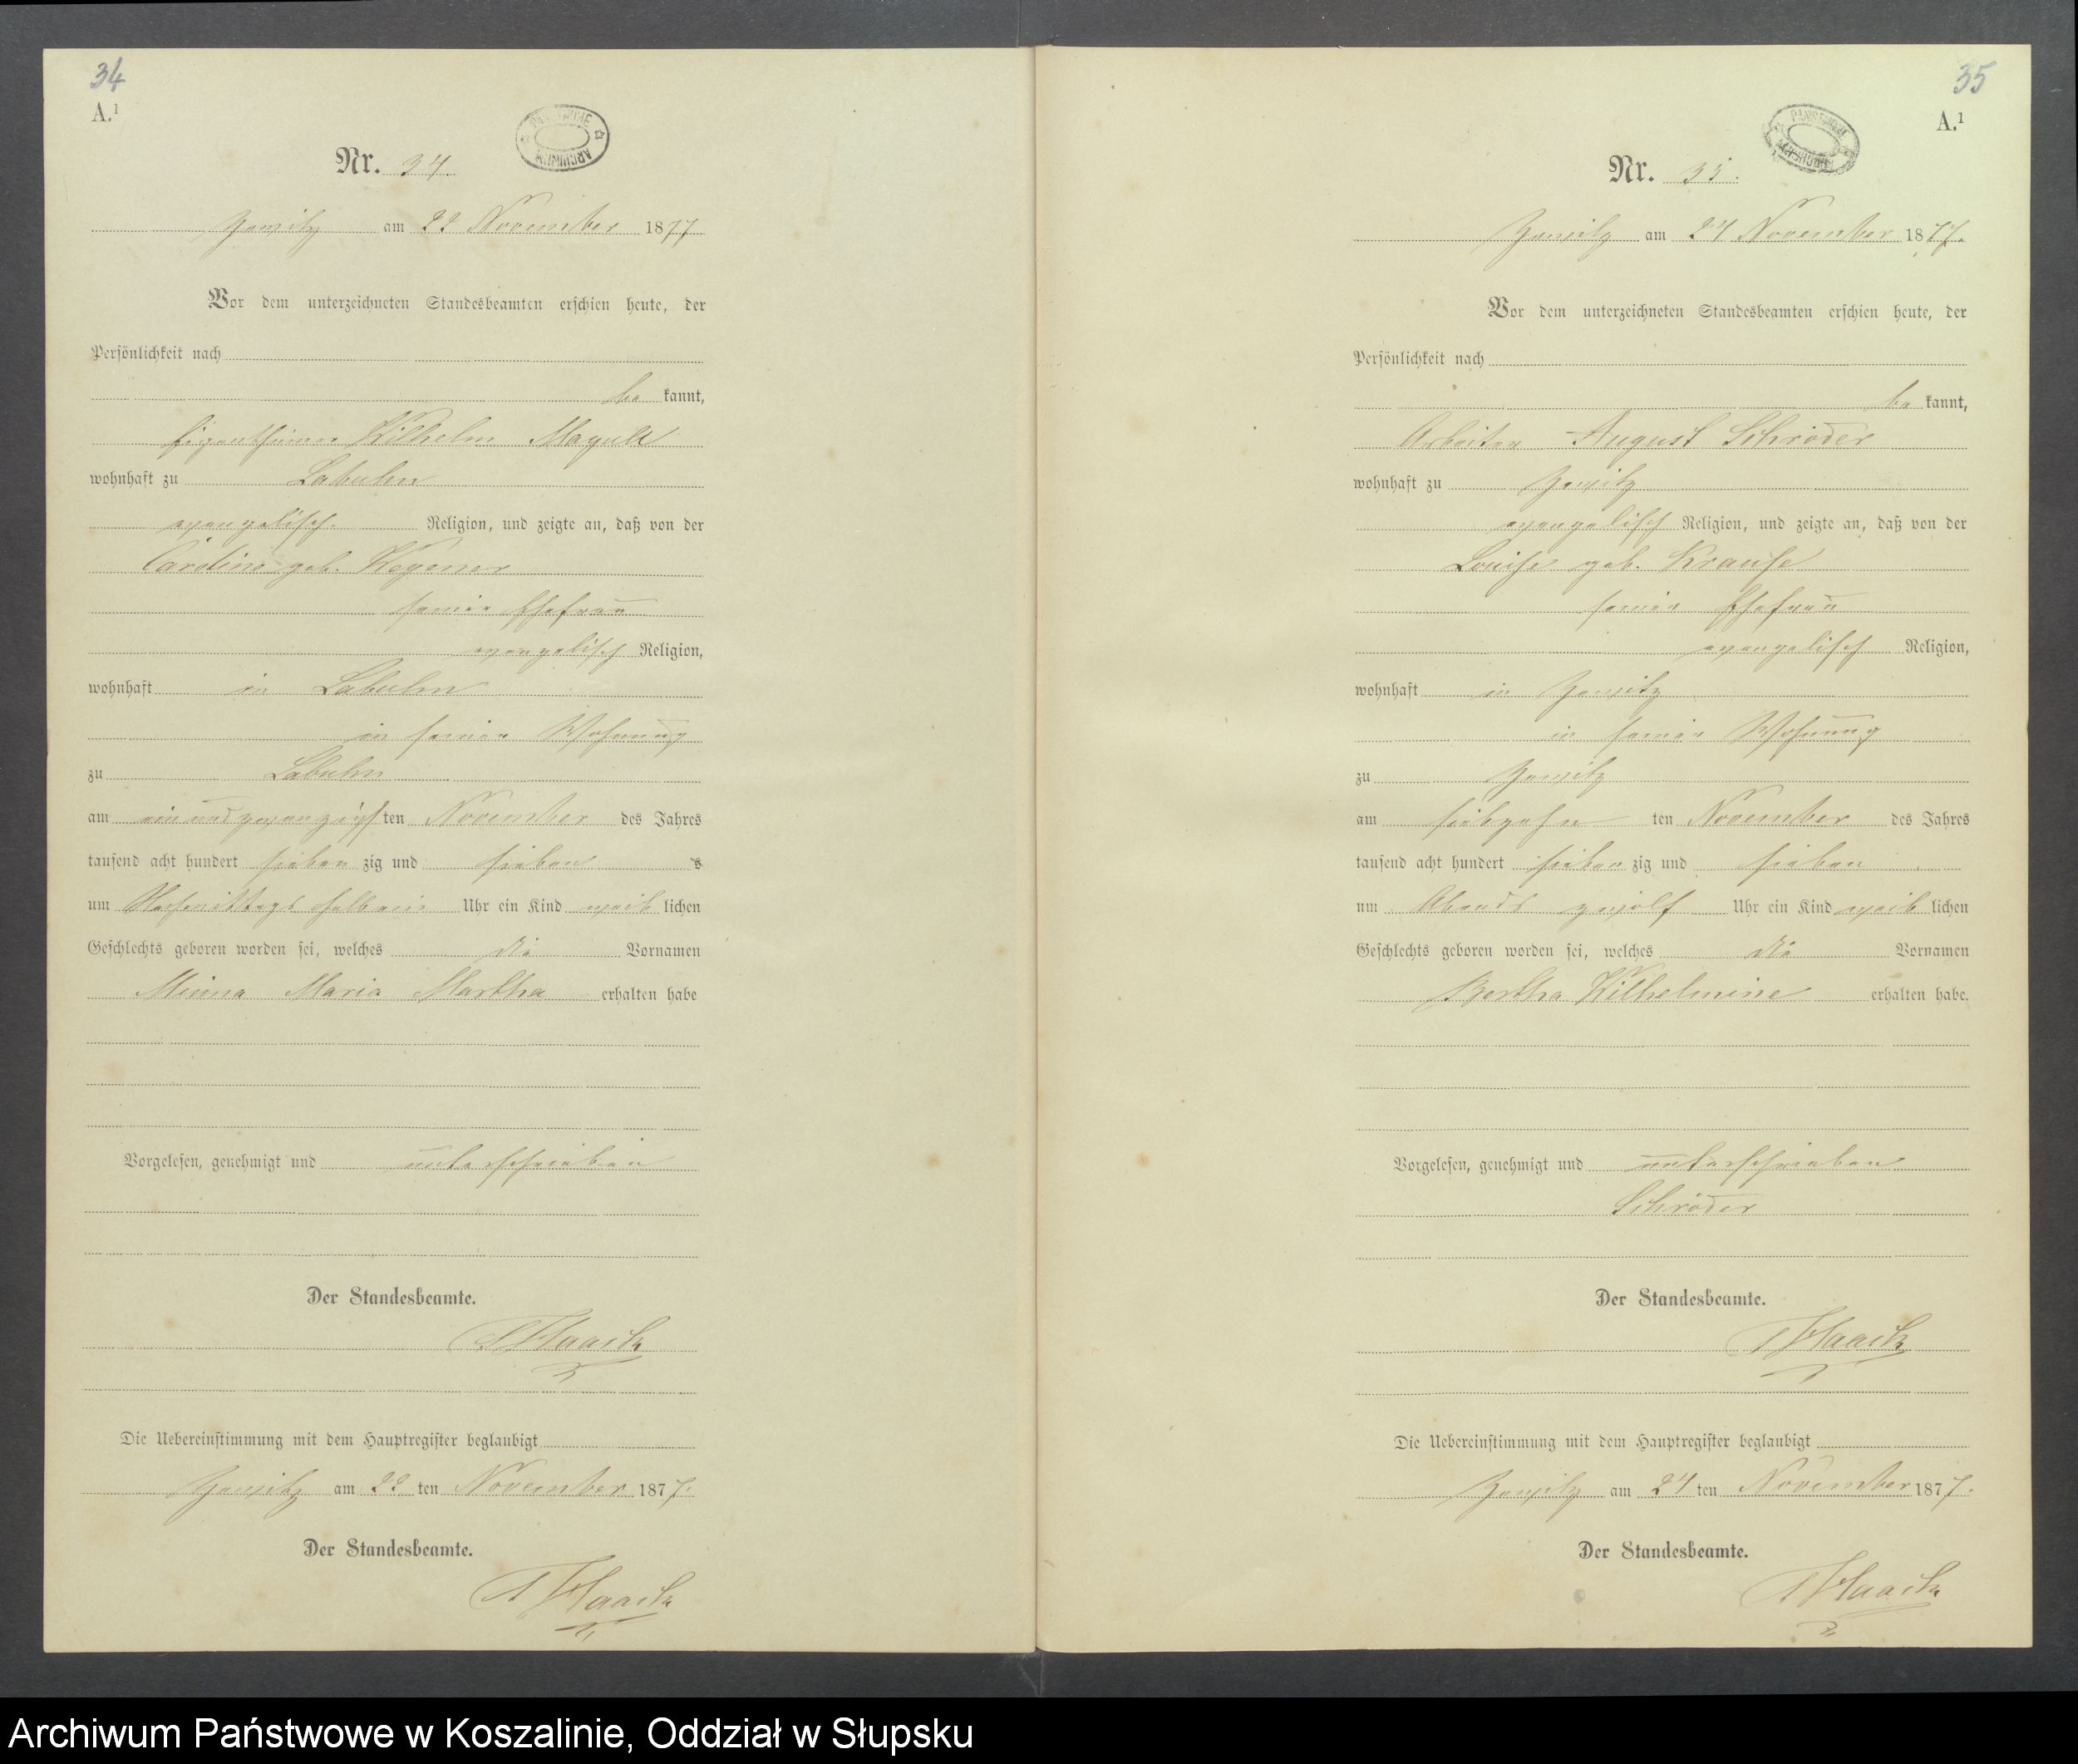 34
A.¹
PAŃSTWOWE ARCHIWUM
Nr. 34.
Zewitz am 22 November 1877
Vor dem unterzeichneten Standesbeamten erschien heute, der
Persönlichkeit nach
be kannt,
Eigenthümer Wilhelm
wohnhaft zu Labuhn
evangelisch. Religion, und zeigte an, daß von der
Caroline geb. Wegener
seiner Ehefrau
evangelisch Religion,
wohnhaft in Labuhn
in seiner Wohnung
zu Labuhn
am ein und zwanzigsten November des Jahres
tausend acht hundert sieben zig und sieben
um Nachmittags halb ein Uhr ein Kind weib lichen
Geschlechts geboren worden sei, welches die Vornamen
Minna Maria Martha erhalten habe
Vorgelesen, genehmigt und unterschrieben
Der Standesbeamte.
Haack
Die Uebereinstimmung mit dem Hauptregister beglaubigt
Zewitz am 22 ten November 1877.
Der Standesbeamte.
Haack
35
A.¹
PAŃSTWOWE ARCHIWUM
Nr. 35.
Zewitz am 24 November 1877.
Vor dem unterzeichneten Standesbeamten erschien heute, der
Persönlichkeit nach
be kannt,
Arbeiter August Schröder
wohnhaft zu Zewitz
evangelisch Religion, und zeigte an, daß von der
Louise geb. Krause
seiner Ehefrau
evangelisch Religion,
wohnhaft in Zewitz
in seiner Wohnung
zu Zewitz
am siebzehn ten November des Jahres
tausend acht hundert sieben zig und sieben
um Abends zwölf Uhr ein Kind weib lichen
Geschlechts geboren worden sei, welches die Vornamen
Bertha Wilhelmine erhalten habe.
Vorgelesen, genehmigt und unterschrieben
Schröder
Der Standesbeamte.
Haack
Die Uebereinstimmung mit dem Hauptregister beglaubigt
Zewitz am 24 ten November 1877.
Der Standesbeamte.
Haack
Archiwum Państwowe w Koszalinie, Oddział w Słupsku